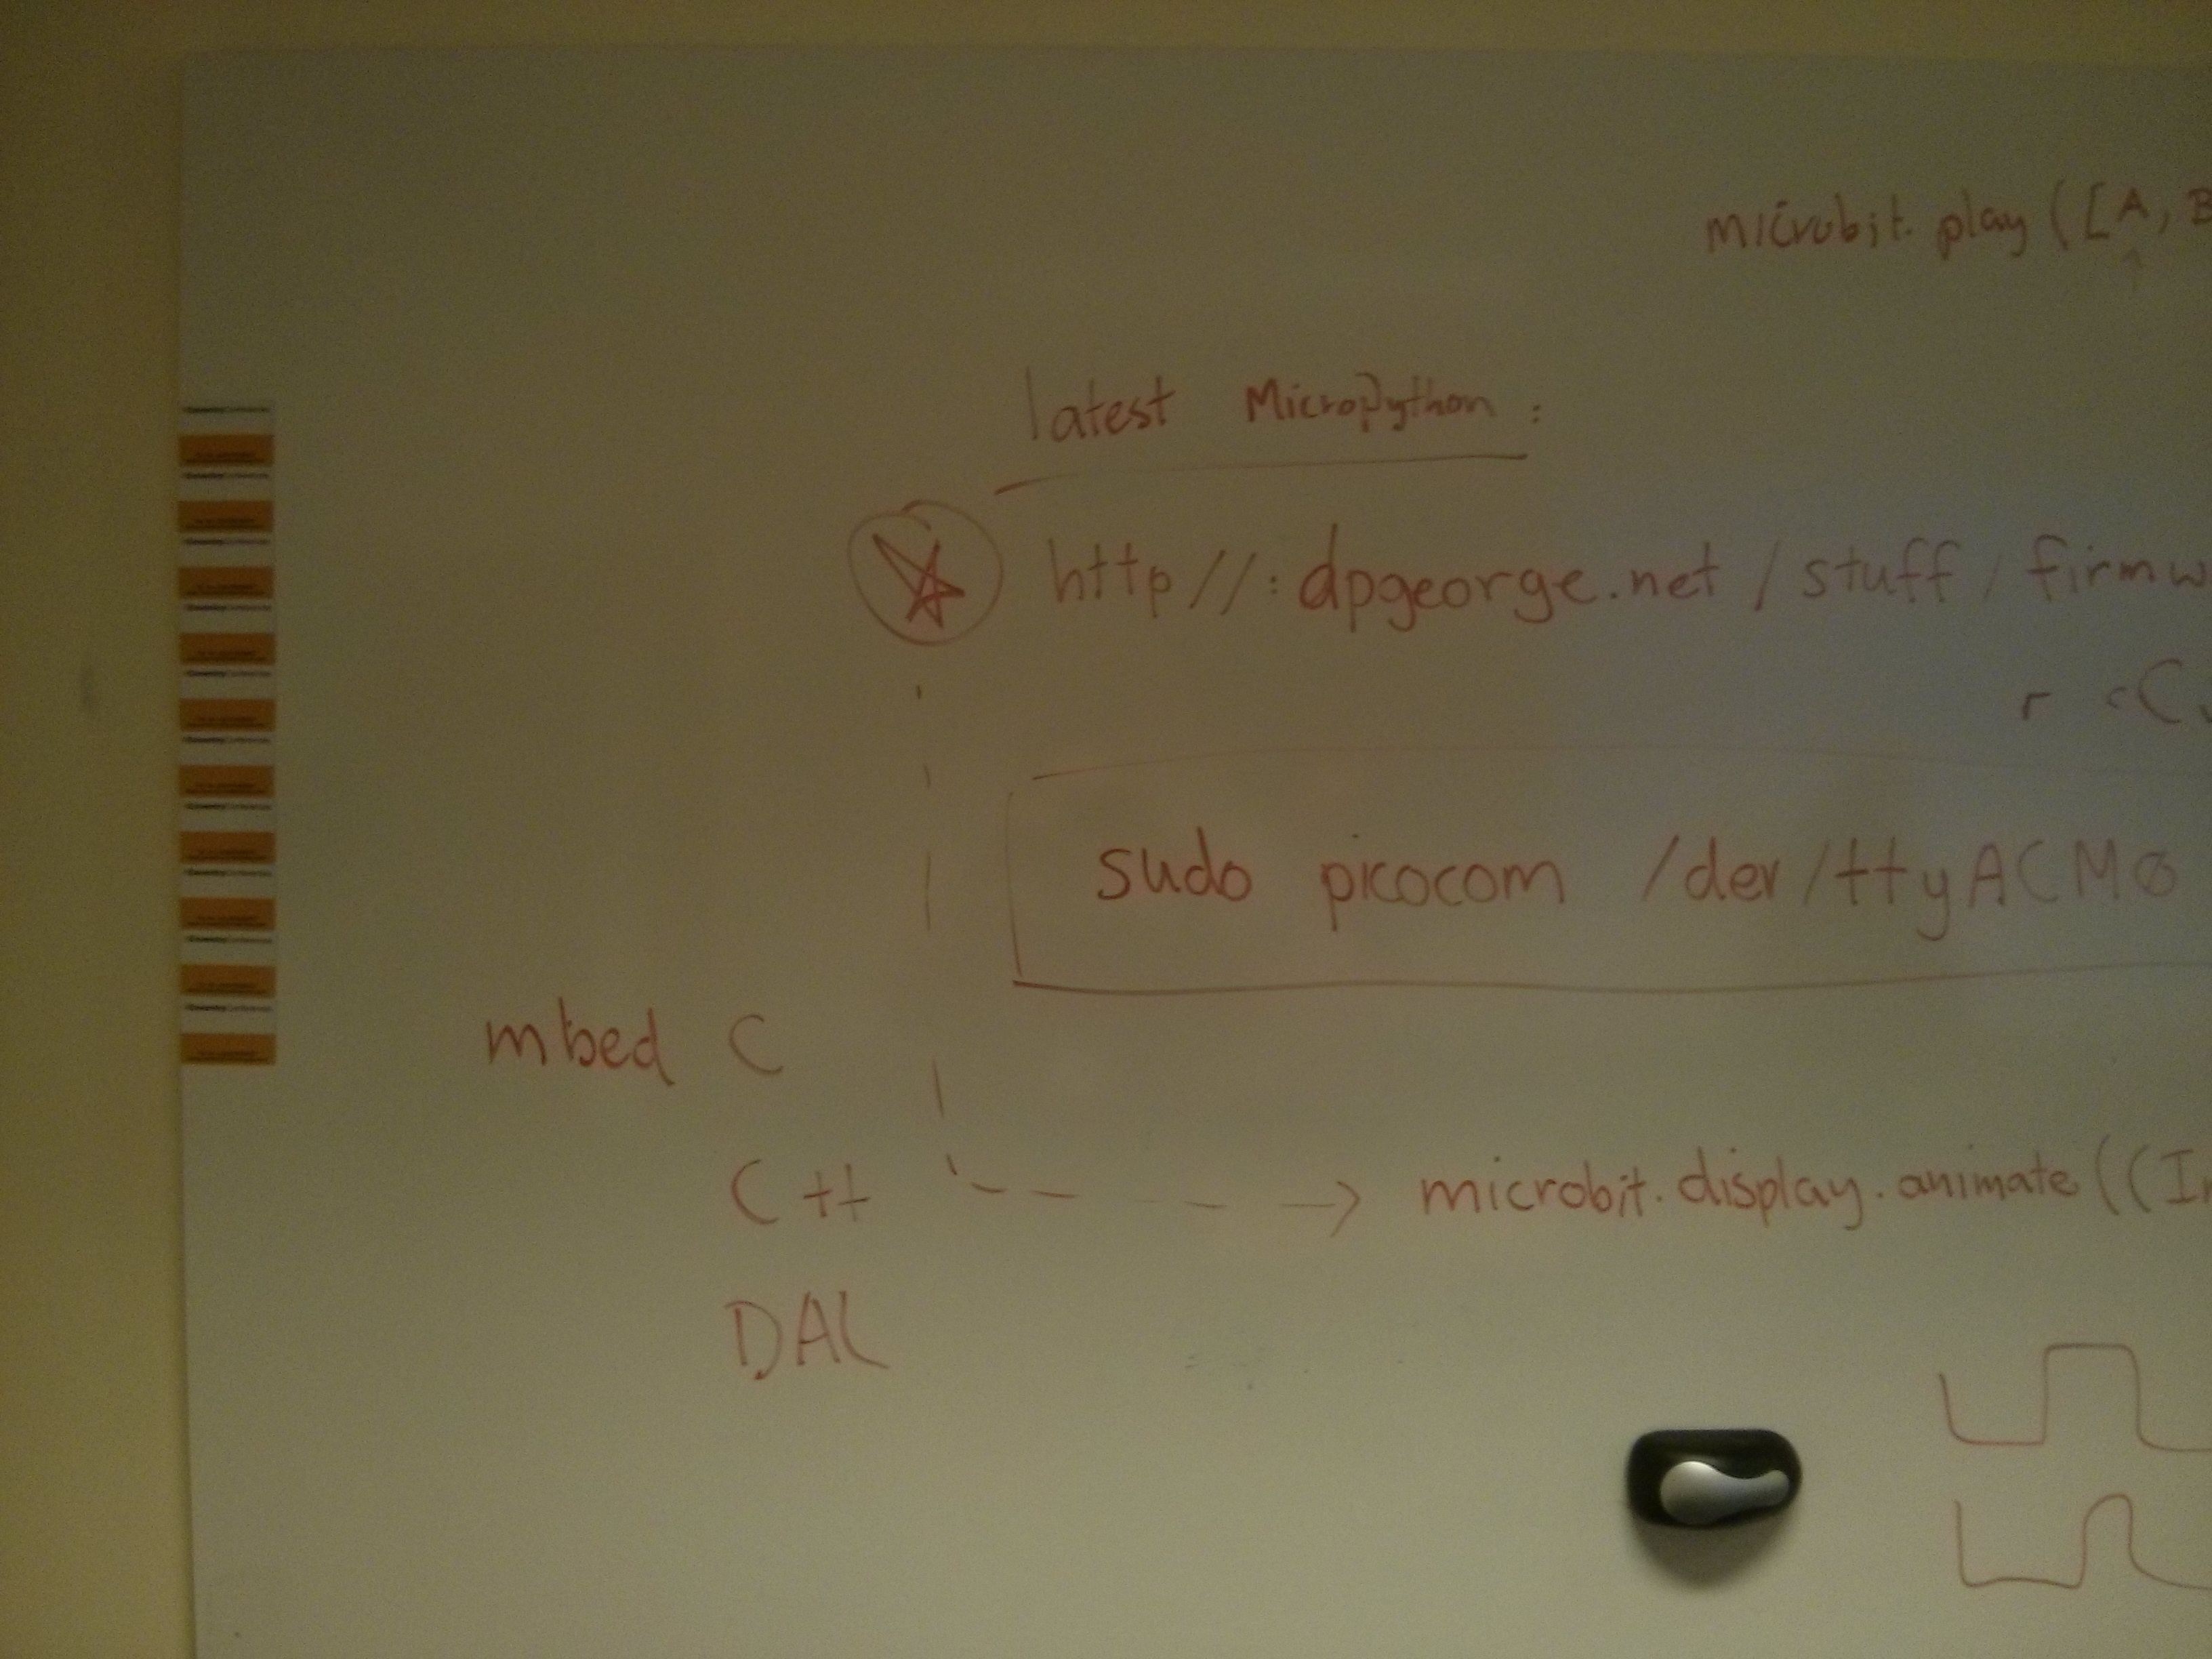 microbit.play([A, B
latest MicroPython :
http//:dpgeorge.net/stuff/firmw
sudo picocom /dev/ttyACM0
mbed C
C++
microbit.display.animate((I
DAL